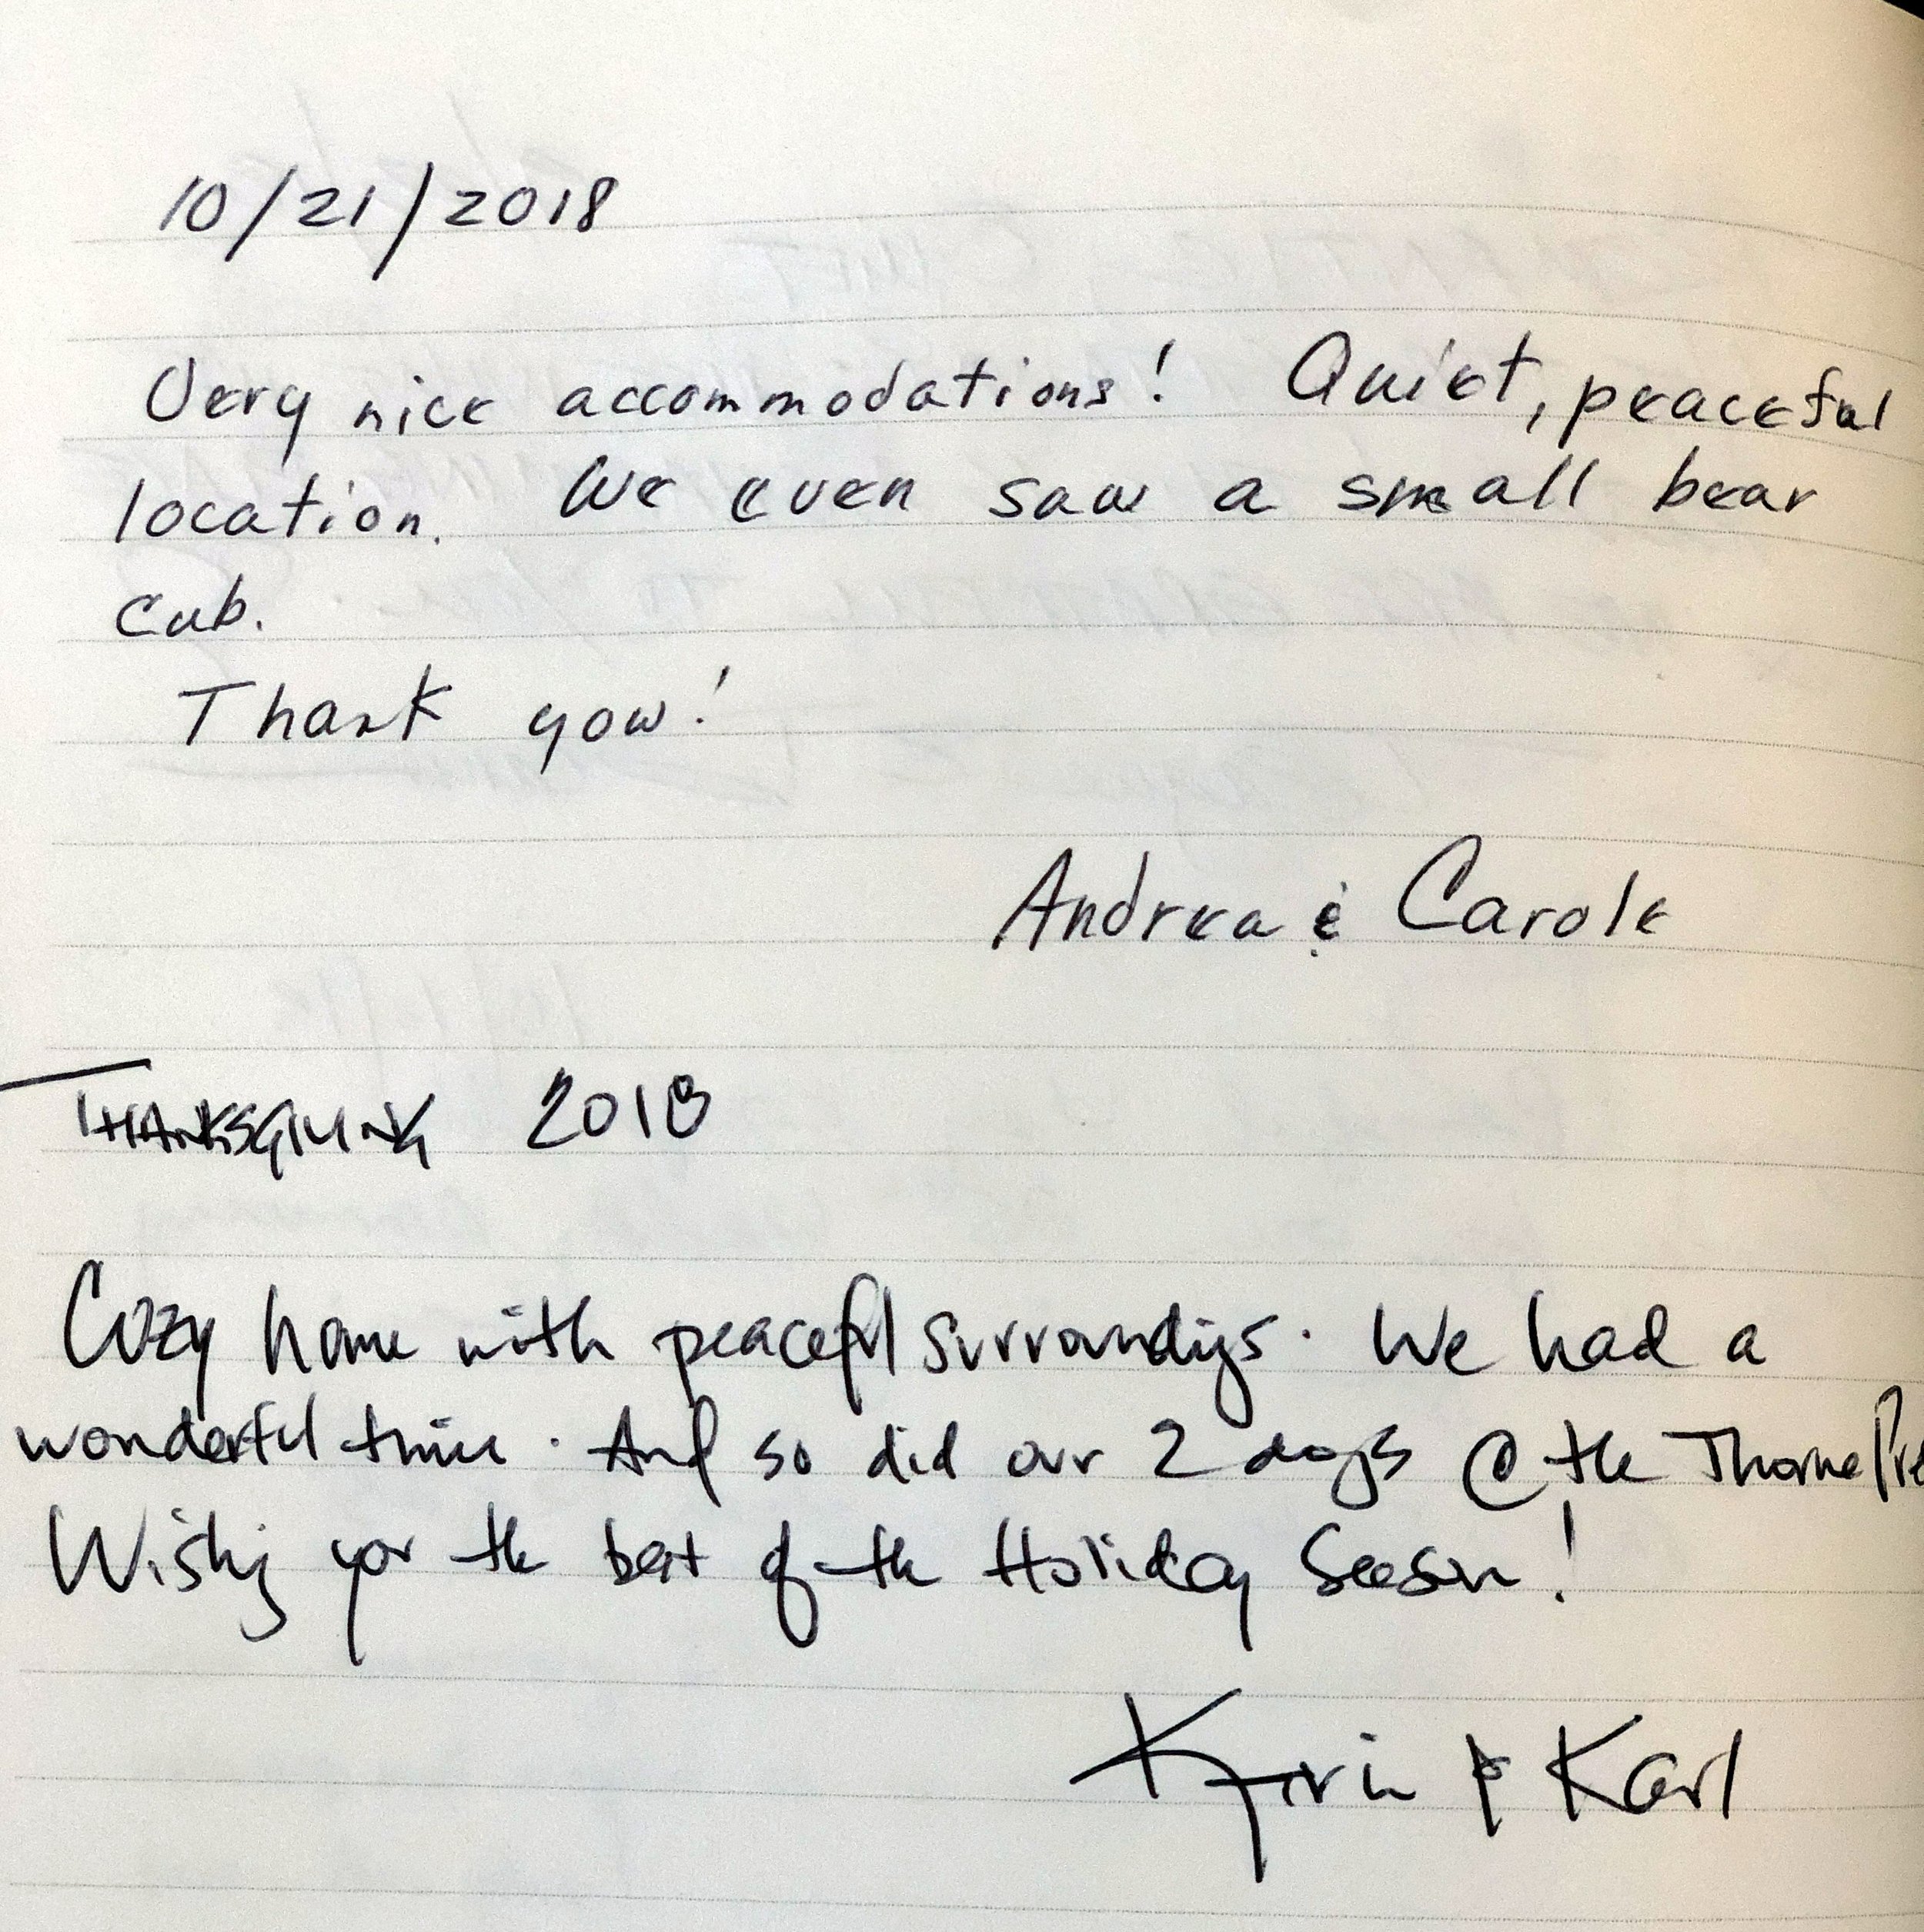 10/21/2018
Very nice accommodations! Quiet, peaceful
location. We even saw a small bear
cub.
Thank you!
Andrea & Carole
THANKSGIVING 2018
Cozy home with peaceful surroundings. We had a
wonderful time. And so did our 2 dogs @ the Thorne
Wishing you the best of the Holiday Season!
& Karl